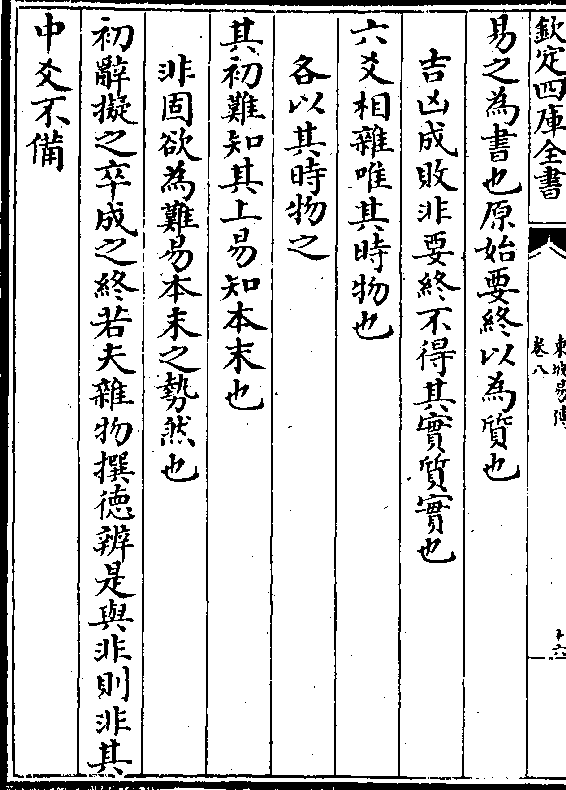 欽定四庫全書
東坡易傳
卷八
十六
易之為書也原始要終以為質也
吉凶成敗非要終不得其實質實也
六爻相雜唯其時物也
各以其時物之
其初難知其上易知本末也
非固欲為難易本末之勢然也
初辭擬之卒成之終若夫雜物撰徳辨是與非則非其
中爻不備